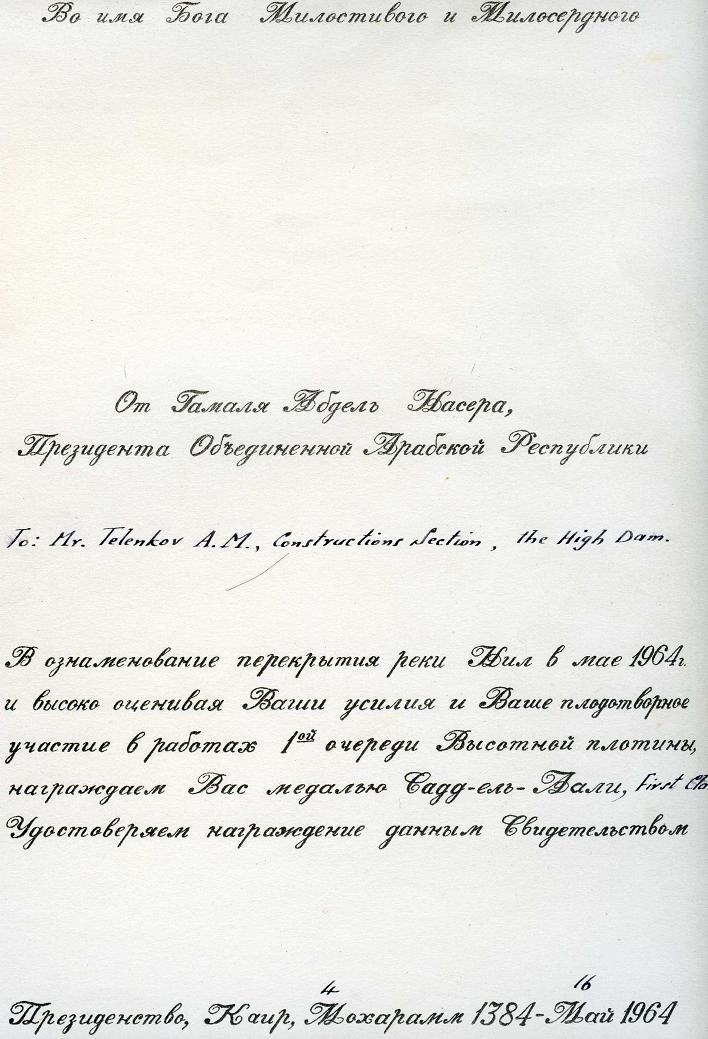 Во имя Бога Милостивого и Милосердного
От Гамаля Абдель Насера,
Президента Объединенной Арабской Республики
To: Mr. Telenkov A.M., Constructions Section, the High Dam.
В ознаменование перекрытия реки Нил в мае 1964г.
и высоко оценивая Ваши усилия и Ваше плодотворное
участие в работах 1ой очереди Высотной плотины,
награждаем Вас медалью Садд-ель-Аали, First Cla
Удостоверяем награждение данным Свидетельством
4 16
Президенство, Каир, Мохарамм 1384-Май 1964